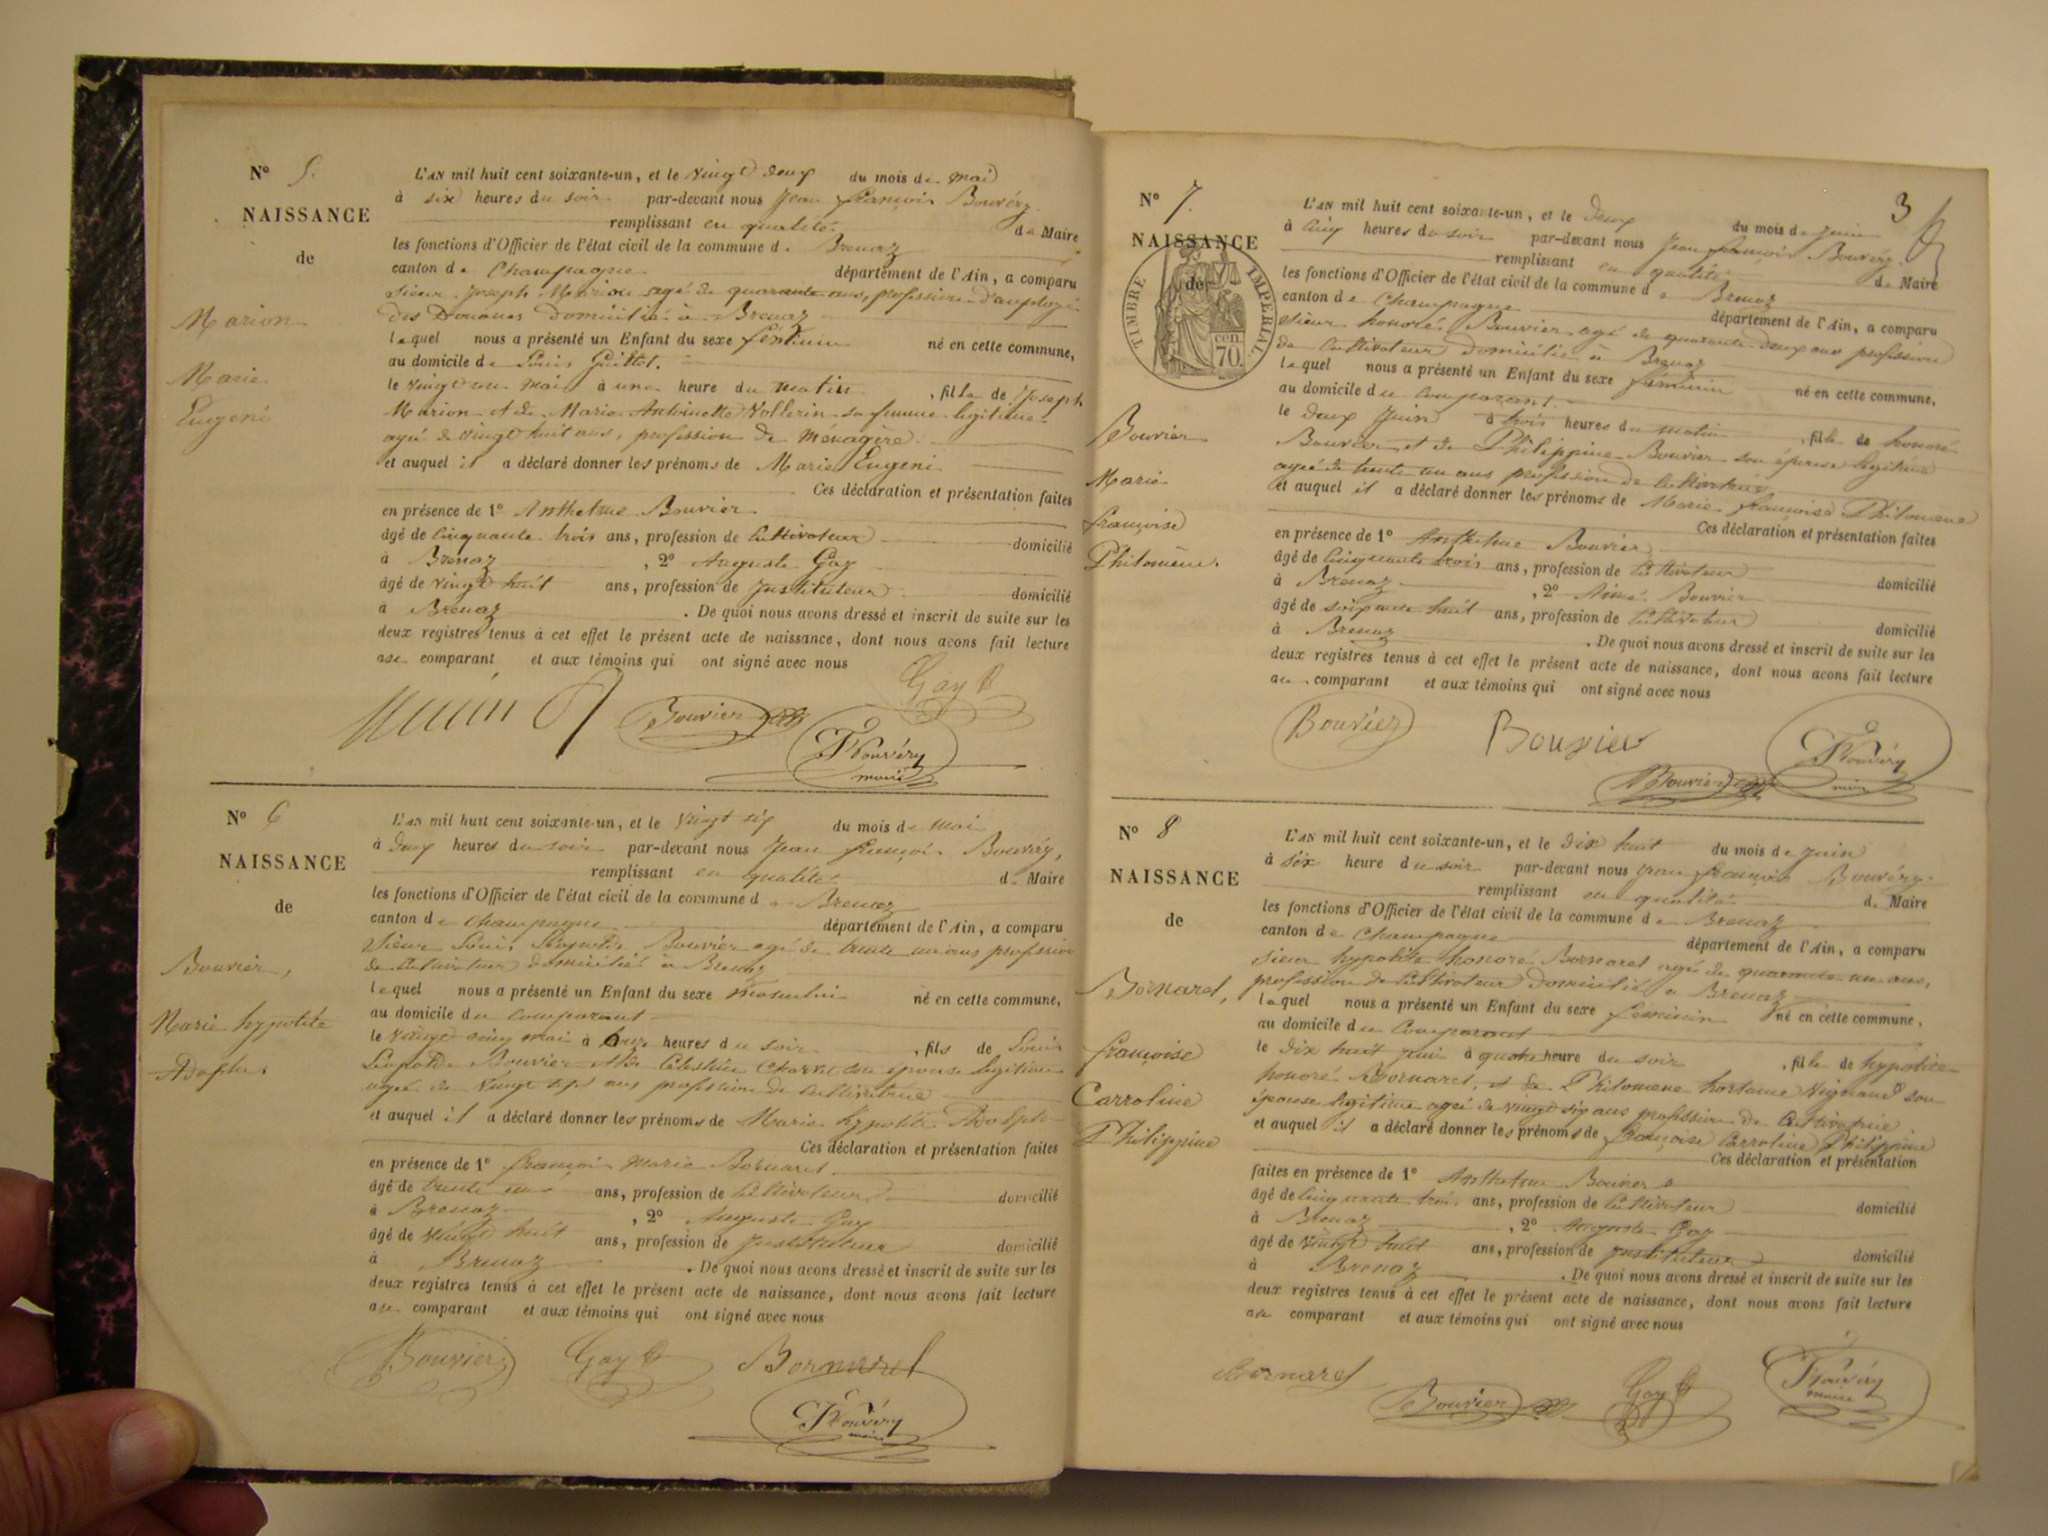 N° 5.
NAISSANCE
de
Marion
Marie
Eugeni
L'AN mil huit cent soixante-un, et le vingt deux du mois de mai
à six heures du soir par-devant nous Jean françois Bouvéry
remplissant en qualité de Maire
les fonctions d'Officier de l'état civil de la commune de Brenaz
canton de Champagne département de l'Ain, a comparu
sieur Joseph Marion agé de quarante ans, profession d'employé
des Douanes domicilié à Brenaz
lequel nous a présenté un Enfant du sexe féminin né en cette commune,
au domicile de Louis Guittot.
le vingt un mai à une heure du matin, fille de Joseph
Marion et de Marie Antoinette Vollerin sa femme legitime
agée de vingt huit ans, profession de Ménagère.
et auquel il a déclaré donner les prénoms de Marie Eugeni
Ces déclaration et présentation faites
en présence de 1° Anthelme Bouvier
âgé de cinquante trois ans, profession de cultivateur domicilié
à Brenaz, 2° Auguste Gay
âgé de vingt huit ans, profession de Instituteur domicilié
à Brenaz. De quoi nous avons dressé et inscrit de suite sur les
deux registres tenus à cet effet le présent acte de naissance, dont nous avons fait lecture
au comparant et aux témoins qui ont signé avec nous
Marion Bouvier Gay
Bouvéry
maire
N° 6
NAISSANCE
de
Bouvier,
Marie hypolite
Adolphe
L'AN mil huit cent soixante-un, et le vingt six du mois de mai
à deux heures du soir par-devant nous Jean françois Bouvéry,
remplissant en qualité de Maire
les fonctions d'Officier de l'état civil de la commune de Brenaz
canton de Champagne département de l'Ain, a comparu
sieur Louis Léopold Bouvier agé de trente un ans profession
de cultivateur domicilié à Brenaz
lequel nous a présenté un Enfant du sexe masculin né en cette commune,
au domicile du comparant
le vingt cinq mai à heures du soir, fils de Louis
Léopold Bouvier et de Célestine son épouse legitime
agée de vingt sept ans profession de cultivatrice
et auquel il a déclaré donner les prénoms de Marie hypolite Adolphe
Ces déclaration et présentation faites
en présence de 1° françois Marie Bornarel
âgé de trente ans, profession de cultivateur domicilié
à Brenaz, 2° Auguste Gay
âgé de vingt huit ans, profession de Instituteur domicilié
à Brenaz. De quoi nous avons dressé et inscrit de suite sur les
deux registres tenus à cet effet le présent acte de naissance, dont nous avons fait lecture
au comparant et aux témoins qui ont signé avec nous
Bouvier Gay Bornarel
Bouvéry
maire
3
N° 7.
NAISSANCE
de
TIMBRE IMPÉRIAL
70 cen.
Bouvier
Marie
françoise
Philomène.
L'AN mil huit cent soixante-un, et le deux du mois de juin
à cinq heures du soir par-devant nous Jean françois Bouvéry
remplissant en qualité de Maire
les fonctions d'Officier de l'état civil de la commune de Brenaz
canton de Champagne département de l'Ain, a comparu
sieur honoré Bouvier agé de quarante deux ans profession
de cultivateur domicilié à Brenaz
lequel nous a présenté un Enfant du sexe féminin né en cette commune,
au domicile du comparant.
le deux juin à trois heures du matin, fille de honoré
Bouvier et de Philippine Bouvier son épouse legitime
agée de trente un ans profession de cultivatrice
et auquel il a déclaré donner les prénoms de Marie françoise Philomène
Ces déclaration et présentation faites
en présence de 1° Anthelme Bouvier
âgé de cinquante trois ans, profession de cultivateur domicilié
à Brenaz, 2° Aimé Bouvier
âgé de soixante huit ans, profession de cultivateur domicilié
à Brenaz. De quoi nous avons dressé et inscrit de suite sur les
deux registres tenus à cet effet le présent acte de naissance, dont nous avons fait lecture
au comparant et aux témoins qui ont signé avec nous
Bouvier Bouvier Bouvéry
maire
Bouvier
N° 8
NAISSANCE
de
Bornarel,
françoise
Carroline
Philippine
L'AN mil huit cent soixante-un, et le dix huit du mois de juin
à six heure du soir par-devant nous jean françois Bouvéry
remplissant en qualité de Maire
les fonctions d'Officier de l'état civil de la commune de Brenaz
canton de Champagne département de l'Ain, a comparu
sieur hypolite honoré Bornarel agé de quarante un ans,
profession de cultivateur domicilié à Brenaz
lequel nous a présenté un Enfant du sexe féminin né en cette commune,
au domicile du comparant
le dix huit juin à quatre heure du soir, fille de hypolite
honoré Bornarel, et de Philomène hortense Vignand son
épouse legitime agée de vingt six ans profession de cultivatrice
et auquel il a déclaré donner les prénoms de françoise Carroline Philippine
Ces déclaration et présentation
faites en présence de 1° Anthelme Bouvier
âgé de cinquante trois ans, profession de cultivateur domicilié
à Brenaz, 2° Auguste Gay
âgé de vingt huit ans, profession de Instituteur domicilié
à Brenaz. De quoi nous avons dressé et inscrit de suite sur les
deux registres tenus à cet effet le présent acte de naissance, dont nous avons fait lecture
au comparant et aux témoins qui ont signé avec nous
Bornarel Bouvier Gay Bouvéry
maire